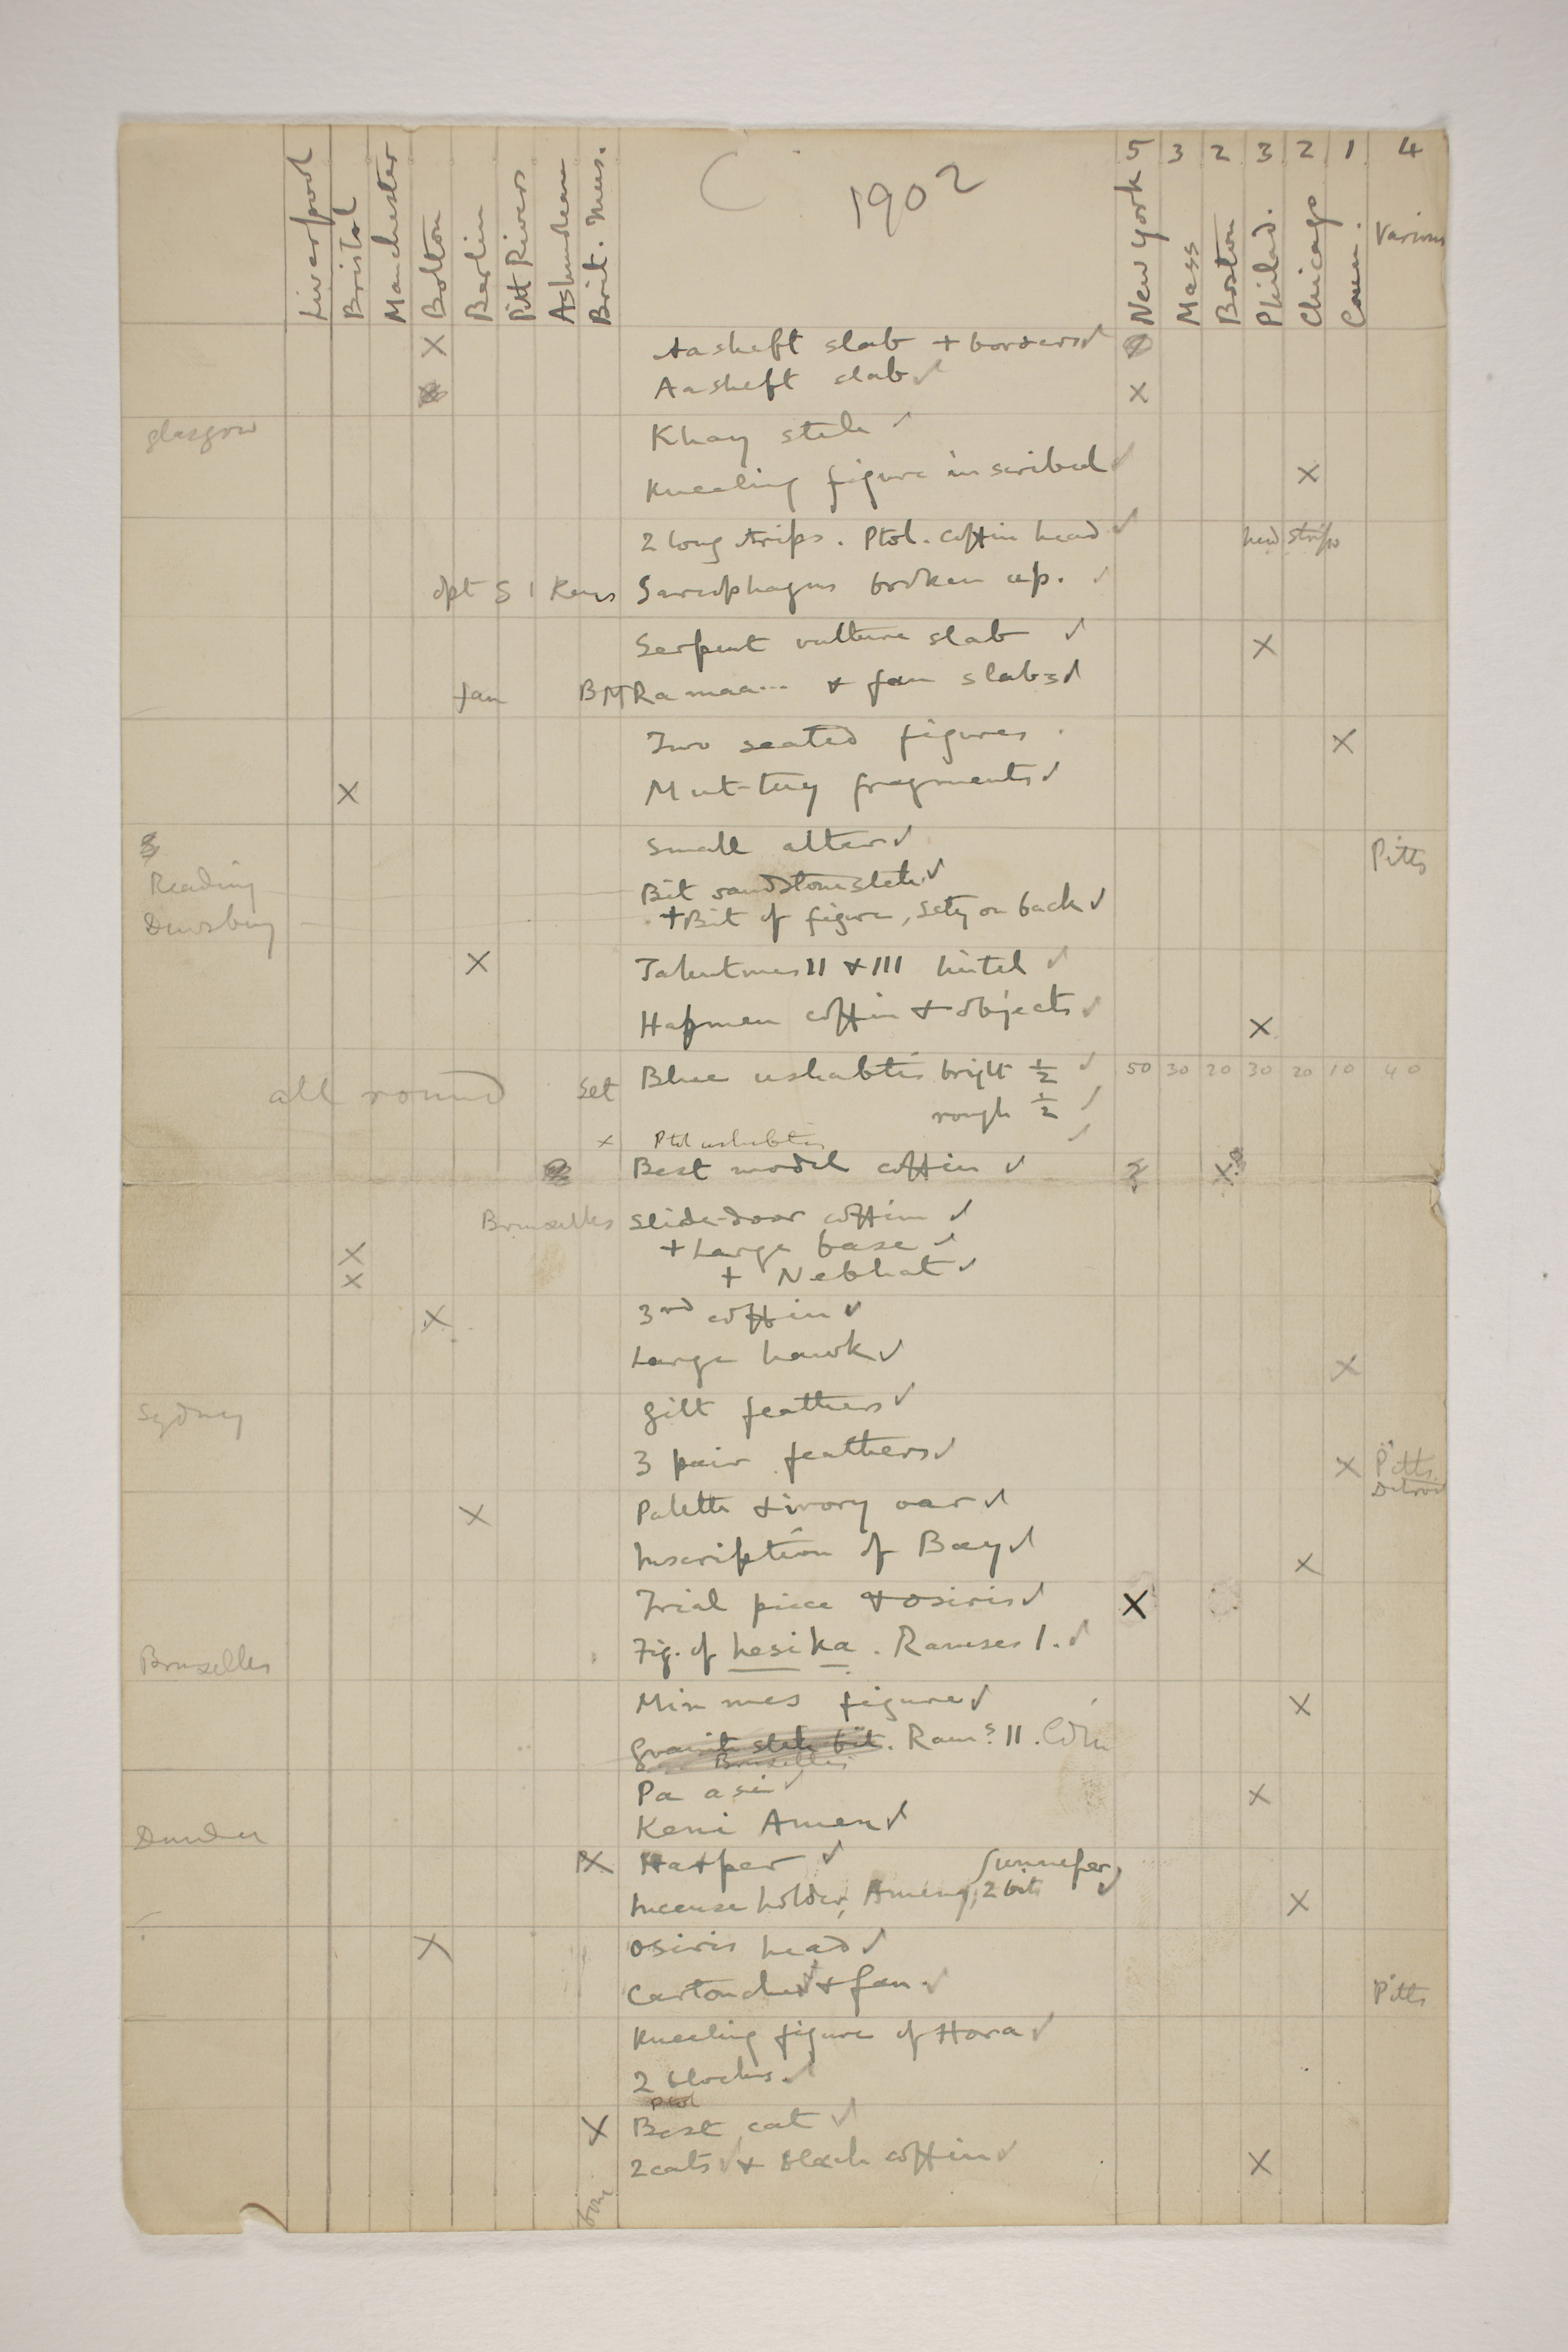 C 1902
5 3 2 3 2 1 4
Liverpool Bristol Manchester Bolton Berlin Pitt Rivers Ashmolean Brit. Mus. New York Mass Boston Philad. Chicago Conn. Various
X Aasheft slab + borders ✓
Aasheft slab ✓ X
Glasgow Khay stele ✓
Kneeling figure inscribed ✓ X
2 long strips. Ptol. coffin head ✓ head strips
Sarcophagus broken up. ✓
Serpent vulture slab ✓ X
fan BM Ramaa... + fan slabs ✓
Two seated figures X
X Mut-tuy fragments ✓
Small altar ✓ Pitts
Reading Bit sandstone stele ✓
Dewsbury + Bit of figure, Sety on back ✓
X Tahutmes II + III lintel ✓
Hapmen coffin + objects ✓ X
all round Set Blue ushabtis bright ½ ✓ 50 30 20 30 20 10 40
rough ½ ✓
x Ptol ushabtis ✓
Best model coffin ✓ ? X?
Bruxelles Slide-door coffin ✓
X + Large base ✓
X + Nebhat ✓
X 3rd coffin ✓
Large hawk ✓ X
Sydney Gilt feathers ✓
3 pair feathers ✓ X Pitts.
Detroit
X Palette + ivory oar ✓
Inscription of Bay ✓ X
Trial piece + Osiris ✓ X
Bruxelles Fig. of hesi ka. Ramses I. ✓
Min mes figure ✓ X
Granite stele bit. Rams II.
Bruxelles
Pa asi ✓ X
Dundee Keni Amen ✓
X Hatper ✓ Sunnefer
Incense holder, Ameny, 2 bits ✓ X
X Osiris head ✓
Cartouches ✓ + fan ✓ Pitts
Kneeling figure of Hora ✓
2 blocks. ✓
Ptol
X Best cat ✓
2 cats ✓ + black coffin ✓ X